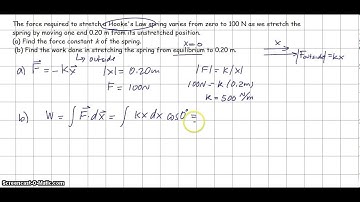 The force required to stretch a Hooke's Law spring varies from zero to 100 N as we stretch the
spring by moving one end 0.20 m from its unstretched position.
(a) Find the force constant k of the spring.
x=0
(b) Find the work done in stretching the spring from equilibrium to 0.20 m.
x
|F outside|=kx
outside
a) F = -kx |x| = 0.20m |F| = k|x|
F = 100N 100N = k (0.2m)
k = 500 N/m
b) W = ∫ F · dx = ∫ kx dx cos0° =
Screencast-O-Matic.com